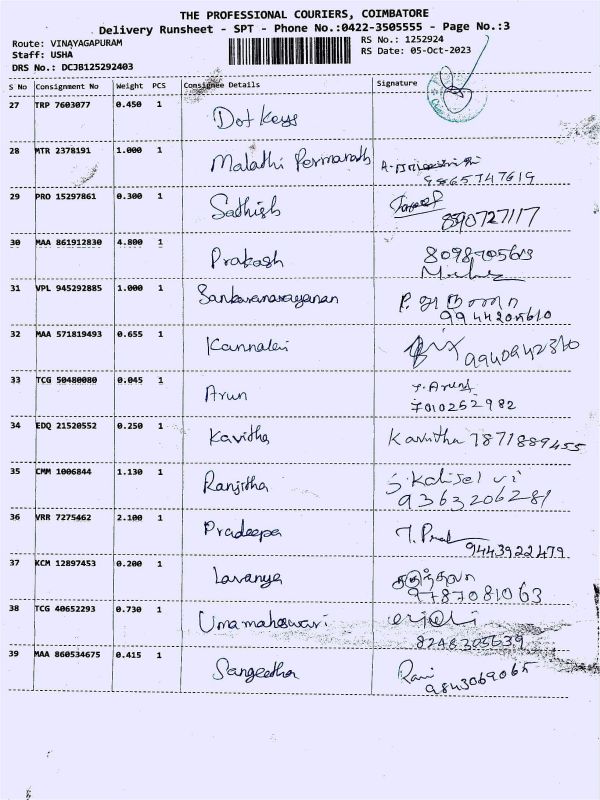 THE PROFESSIONAL COURIERS, COIMBATORE
Delivery Runsheet - SPT - Phone No.:0422-3505555 - Page No.:3
Route: VINAYAGAPURAM
RS No.: 1252924
Staff: USHA
RS Date: 05-Oct-2023
DRS No.: DCJB125292403
S No Consignment No Weight PCS Consignee Details Signature
27 TRP 7603077 0.450 1 Dot Keys
28 MTR 2378191 1.000 1 Malathi
9865747619
29 PRO 15297861 0.300 1 Sathish
890727117
30 MAA 861912830 4.800 1 Prakash
31 VPL 945292885 1.000 1 Sankaranarayanan
9944205610
32 MAA 571819493 0.655 1
33 TCG 50480080 0.045 1 Arun
7010252982
34 EDQ 21520552 0.250 1 Kavitha Kavitha 7871889455
35 CMM 1006844 1.130 1 Ranjitha
9363206281
36 VRR 7275462 2.100 1 Pradeepa
9443922479
37 KCM 12897453 0.200 1 Lavanya
9787081063
38 TCG 40652293 0.730 1 Umamaheswari
8248305639
39 MAA 860534675 0.415 1 Sangeetha Rani
9843069065